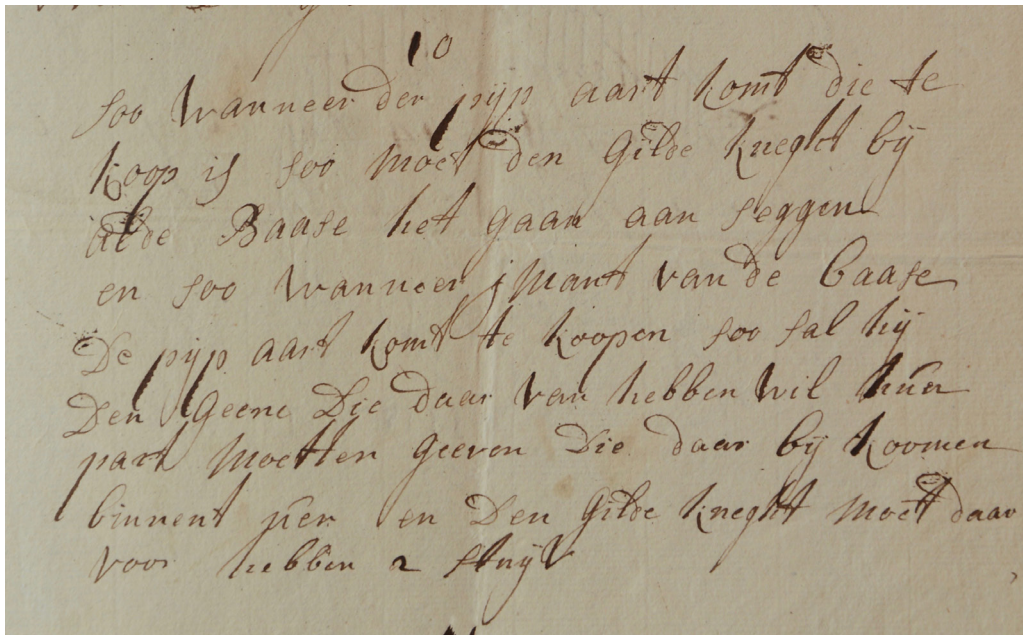 10
soo wanneer den pijp aart komt die te
koop is soo moet den gilde kneght bij
al de Baase het gaan aan seggen
en soo wanneer jmant van de baase
De pijp aart komt te koopen soo sal hij
Den geene Die daar van hebben wil hun
part moetten geeven Die daar bij koomen
binnent uer en Den gilde kneght moet daar
voor hebben 2 stuijv